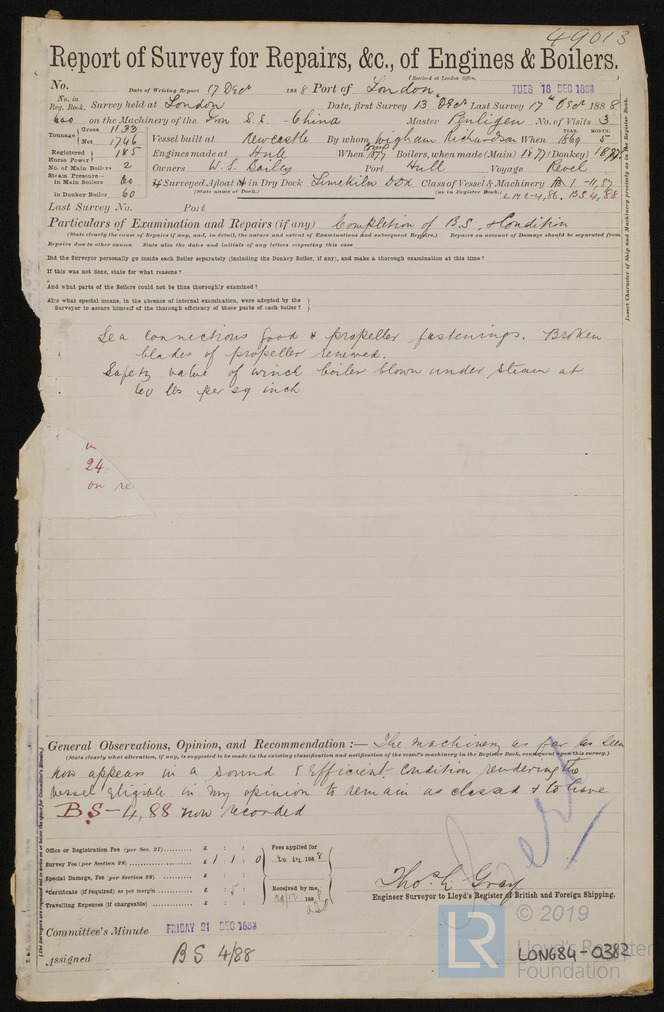 49013
Report of Survey for Repairs, &c., of Engines & Boilers.
(Received at London Office,
No. Date of Writing Report 17 Dect 1888 Port of London TUES 18 DEC 1888
No. in Reg. Book. Survey held at London Date, first Survey 13 Dect Last Survey 17th Dect 1888
600 on the Machinery of the Iron S.S. China Master Penligen No. of Visits 3
Tonnage Gross 1133 Net 1746 Vessel built at Newcastle By whom Wigham Richardson When YEAR. 1869 MONTH. 5
Registered Horse Power 185 Engines made at Hull When Comp 1877 Boilers, when made (Main) 1877 (Donkey) 1877
No. of Main Boilers 2 Owners W. S. Bailey Port Hull Voyage Revel
Steam Pressure— in Main Boilers 60 If Surveyed Afloat or in Dry Dock Limekiln Dock Class of Vessel & Machinery
in Donkey Boiler 60 (State name of Dock.) (as in Register Book.) LMC-4,86, BS 4,88
Last Survey No. Port
Particulars of Examination and Repairs (if any) Completion of B.S. & Condition
(State clearly the cause of Repairs if any, and, in detail, the nature and extent of Examinations and subsequent Repairs.) Repairs on account of Damage should be separated from
Repairs due to other causes. State also the dates and initials of any letters respecting this case
Did the Surveyor personally go inside each Boiler separately (including the Donkey Boiler, if any), and make a thorough examination at this time?
If this was not done, state for what reasons?
And what parts of the Boilers could not be thus thoroughly examined?
Also what special means, in the absence of internal examination, were adopted by the
Surveyor to assure himself of the thorough efficiency of those parts of each boiler?
Insert Character of Ship and Machinery precisely as in the Register Book.
Sea connections good & propeller fastenings. Broken
blades of propeller renewed.
Safety valve of winch boiler blown under steam at
60 lbs per sq inch
24
on re
General Observations, Opinion, and Recommendation:— The machinery as far as seen
(State clearly what alteration, if any, is suggested to be made in the existing classification and notification of the vessel's machinery in the Register Book, consequent upon this survey.)
now appears in a sound & efficient condition rendering the
vessel eligible in my opinion to remain as classed & to have
B.S - 4,88 now recorded
Office or Registration Fee (per Sec. 27) £ : :
Survey Fee (per Section 28) £ 1 : 1 : 0
Special Damage, Fee (per Section 28) £ : :
*Certificate (if required) as per margin £ : 5 :
Travelling Expenses (if chargeable) £ : :
Fees applied for 20.12.1888
Received by me,
Thos. L. Gray
Engineer Surveyor to Lloyd's Register of British and Foreign Shipping.
Committee's Minute FRIDAY 21 DEC 1888
Assigned BS 4/88
LR
© 2019
Lloyd's Register
Foundation
LON684-0382